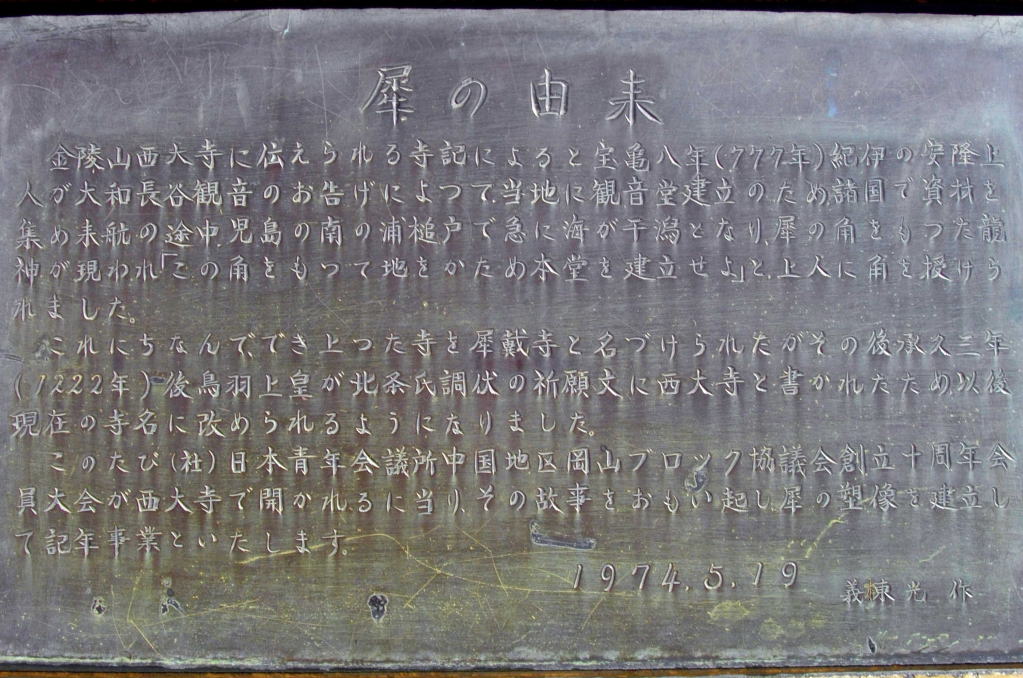 犀の由来
金陵山西大寺に伝えられる寺記によると宝亀八年(777年)紀伊の安隆上
人が大和長谷観音のお告げによつて、当地に観音堂建立のため、諸国で資材を
集め来航の途中、児島の南の浦槌戸で急に海が干潟となり、犀の角をもつた龍
神が現われ「この角をもつて地をかため本堂を建立せよ」と、上人に角を授けら
れました。
これにちなんで、でき上つた寺を犀戴寺と名づけられたがその後承久三年
(1222年)後鳥羽上皇が北条氏調伏の祈願文に西大寺と書かれたため、以後
現在の寺名に改められるようになりました。
このたび(社)日本青年会議所中国地区岡山ブロック協議会創立十周年会
員大会が西大寺で開かれるに当り、その故事をおもい起し、犀の塑像を建立し
て記年事業といたします。
1974.5.19
義 光 作